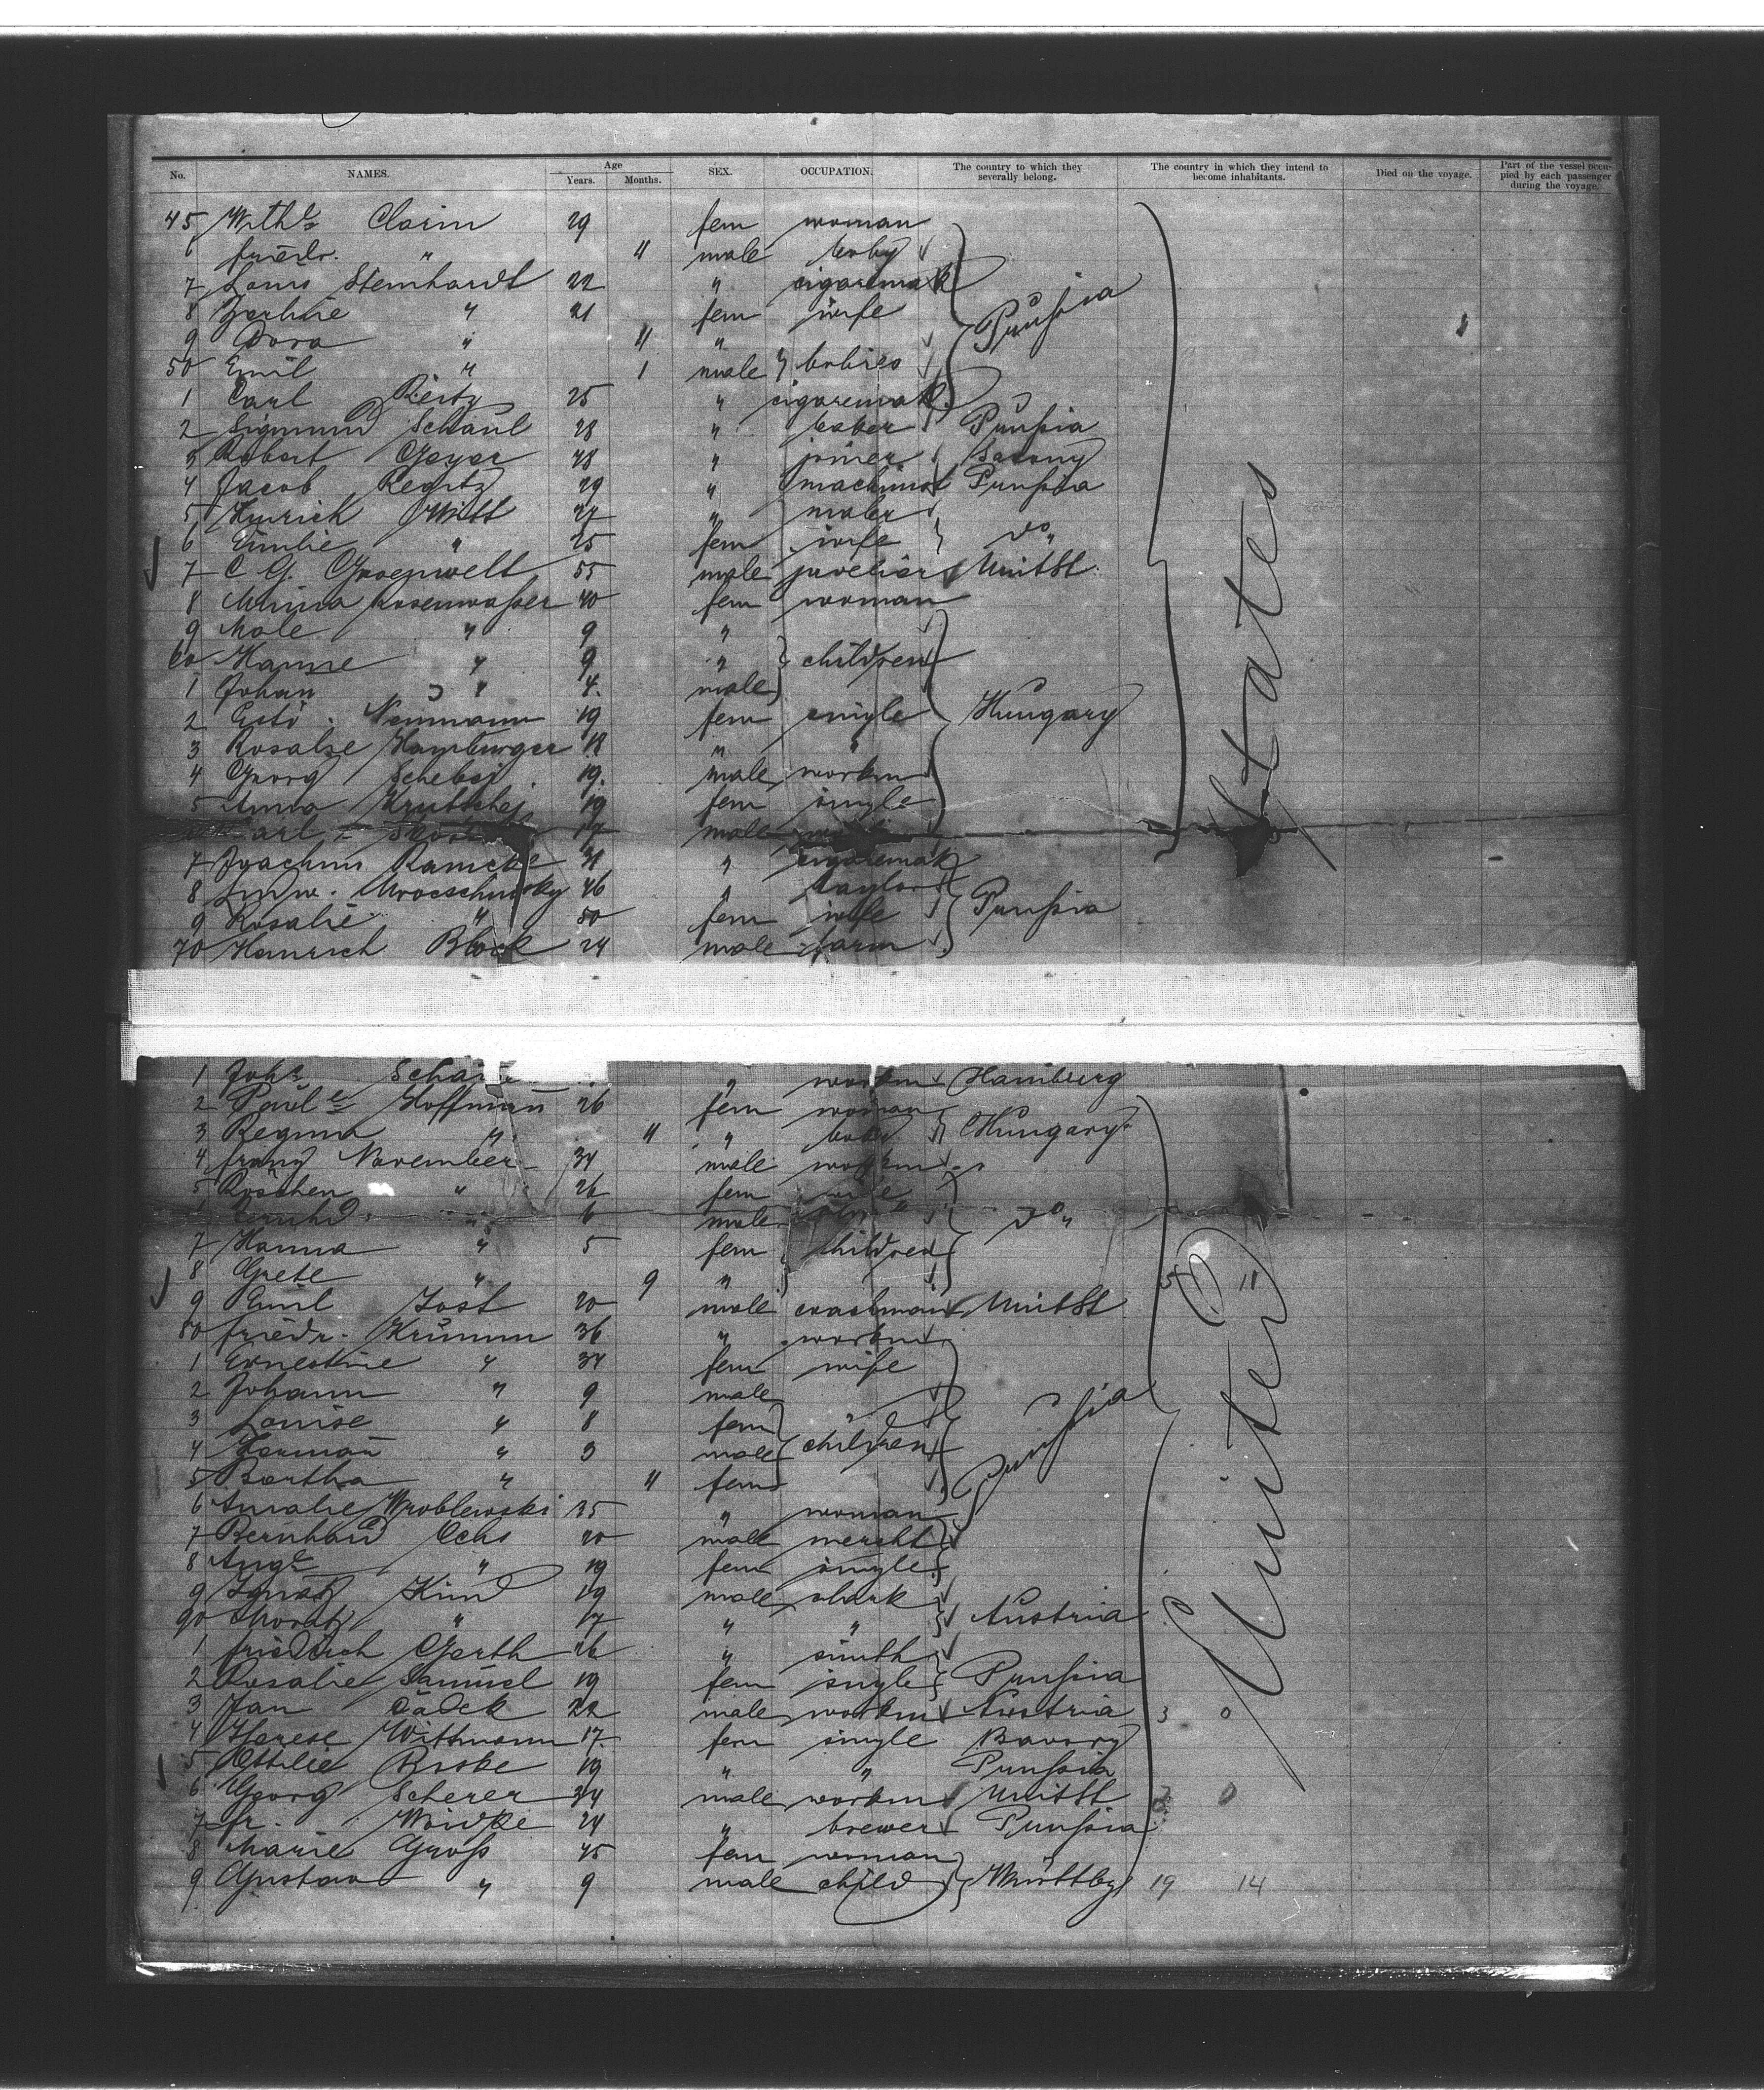 No. NAMES. Age Years. Months. SEX. OCCUPATION. The country to which they severally belong. The country in which they intend to become inhabitants. Died on the voyage. Part of the vessel occupied by each passenger during the voyage.
45 Wilhe Claim 29 fem woman
6 friedr. " 11 male baby
7 Louis Steinhardt 22 " cigaremak
8 Zerline " 21 fem wife Prussia
9 Dora " 11 "
50 Emil " 1 male babies
1 Carl Reitz 25 " cigaremak
2 Sigmund Schaul 28 " baker Prussia
3 Robert Geyer 48 " joiner Saxony
4 Jacob Regitz 29 " machinist Prussia
5 Hinrich Witt 27 " maler
6 Emilie " 25 fem wife do
7 C G. Groenwelt 55 male juvelier UnitSt.
8 Minna Rosenwasser 40 fem woman
9 Male " 9 "
60 Hanne " 9 " children
1 Johan " 4. male
2 Neumann 19 fem single Hungary
3 Rosalie Hamburger 18 " "
4 Georg 19. male workm
5 Anna 19 fem single
Carl 17 male
7 Joachim Ramcke 31 " cigaremak
8 Ludw. 46 " taylor
9 Rosalie " 50 fem wife Prussia
70 Heinrich Block 24 male farm
States
1 Johs " workm Hamburg
2 Paule Hoffmann 26 fem woman
3 Regina " 11 " baby Hungary
4 franz November 34 male workm
5 Röschen " 26 fem wife
" 6 male do
7 Hanna " 5 fem children
8 Grete " 9 "
9 Emil Jost 20 male coachman UnitSt
80 friedr. Krumm 36 " workm
1 Ernestine " 34 fem wife
2 Johann " 9 male
3 Louise " 8 fem
4 Herman " 3 male children Prussia
5 Bertha " 11 fem
6 Amalie Wroblewski 35 " woman
7 Bernhard Ochs 20 male mercht
8 Auge " 19 fem single
9 Ignatz Kind 19 male clerk
90 Moritz " 17 " " Austria
1 friedrich Gerth 26 " smith
2 Rosalie Samuel 19 fem single Prussia
3 Jan 22 male workm Austria 3 0
4 Therese Wittmann 17 fem single Bavary
5 Ottilie Riske 19 " " Prussia
6 Georg Scherer 34 male workm UnitSt
7 fr. 24 " brewer Prussia
8 Marie Gross 45 fem woman
9 Gustav " 9 male child Württbg 19 14
5 11
United